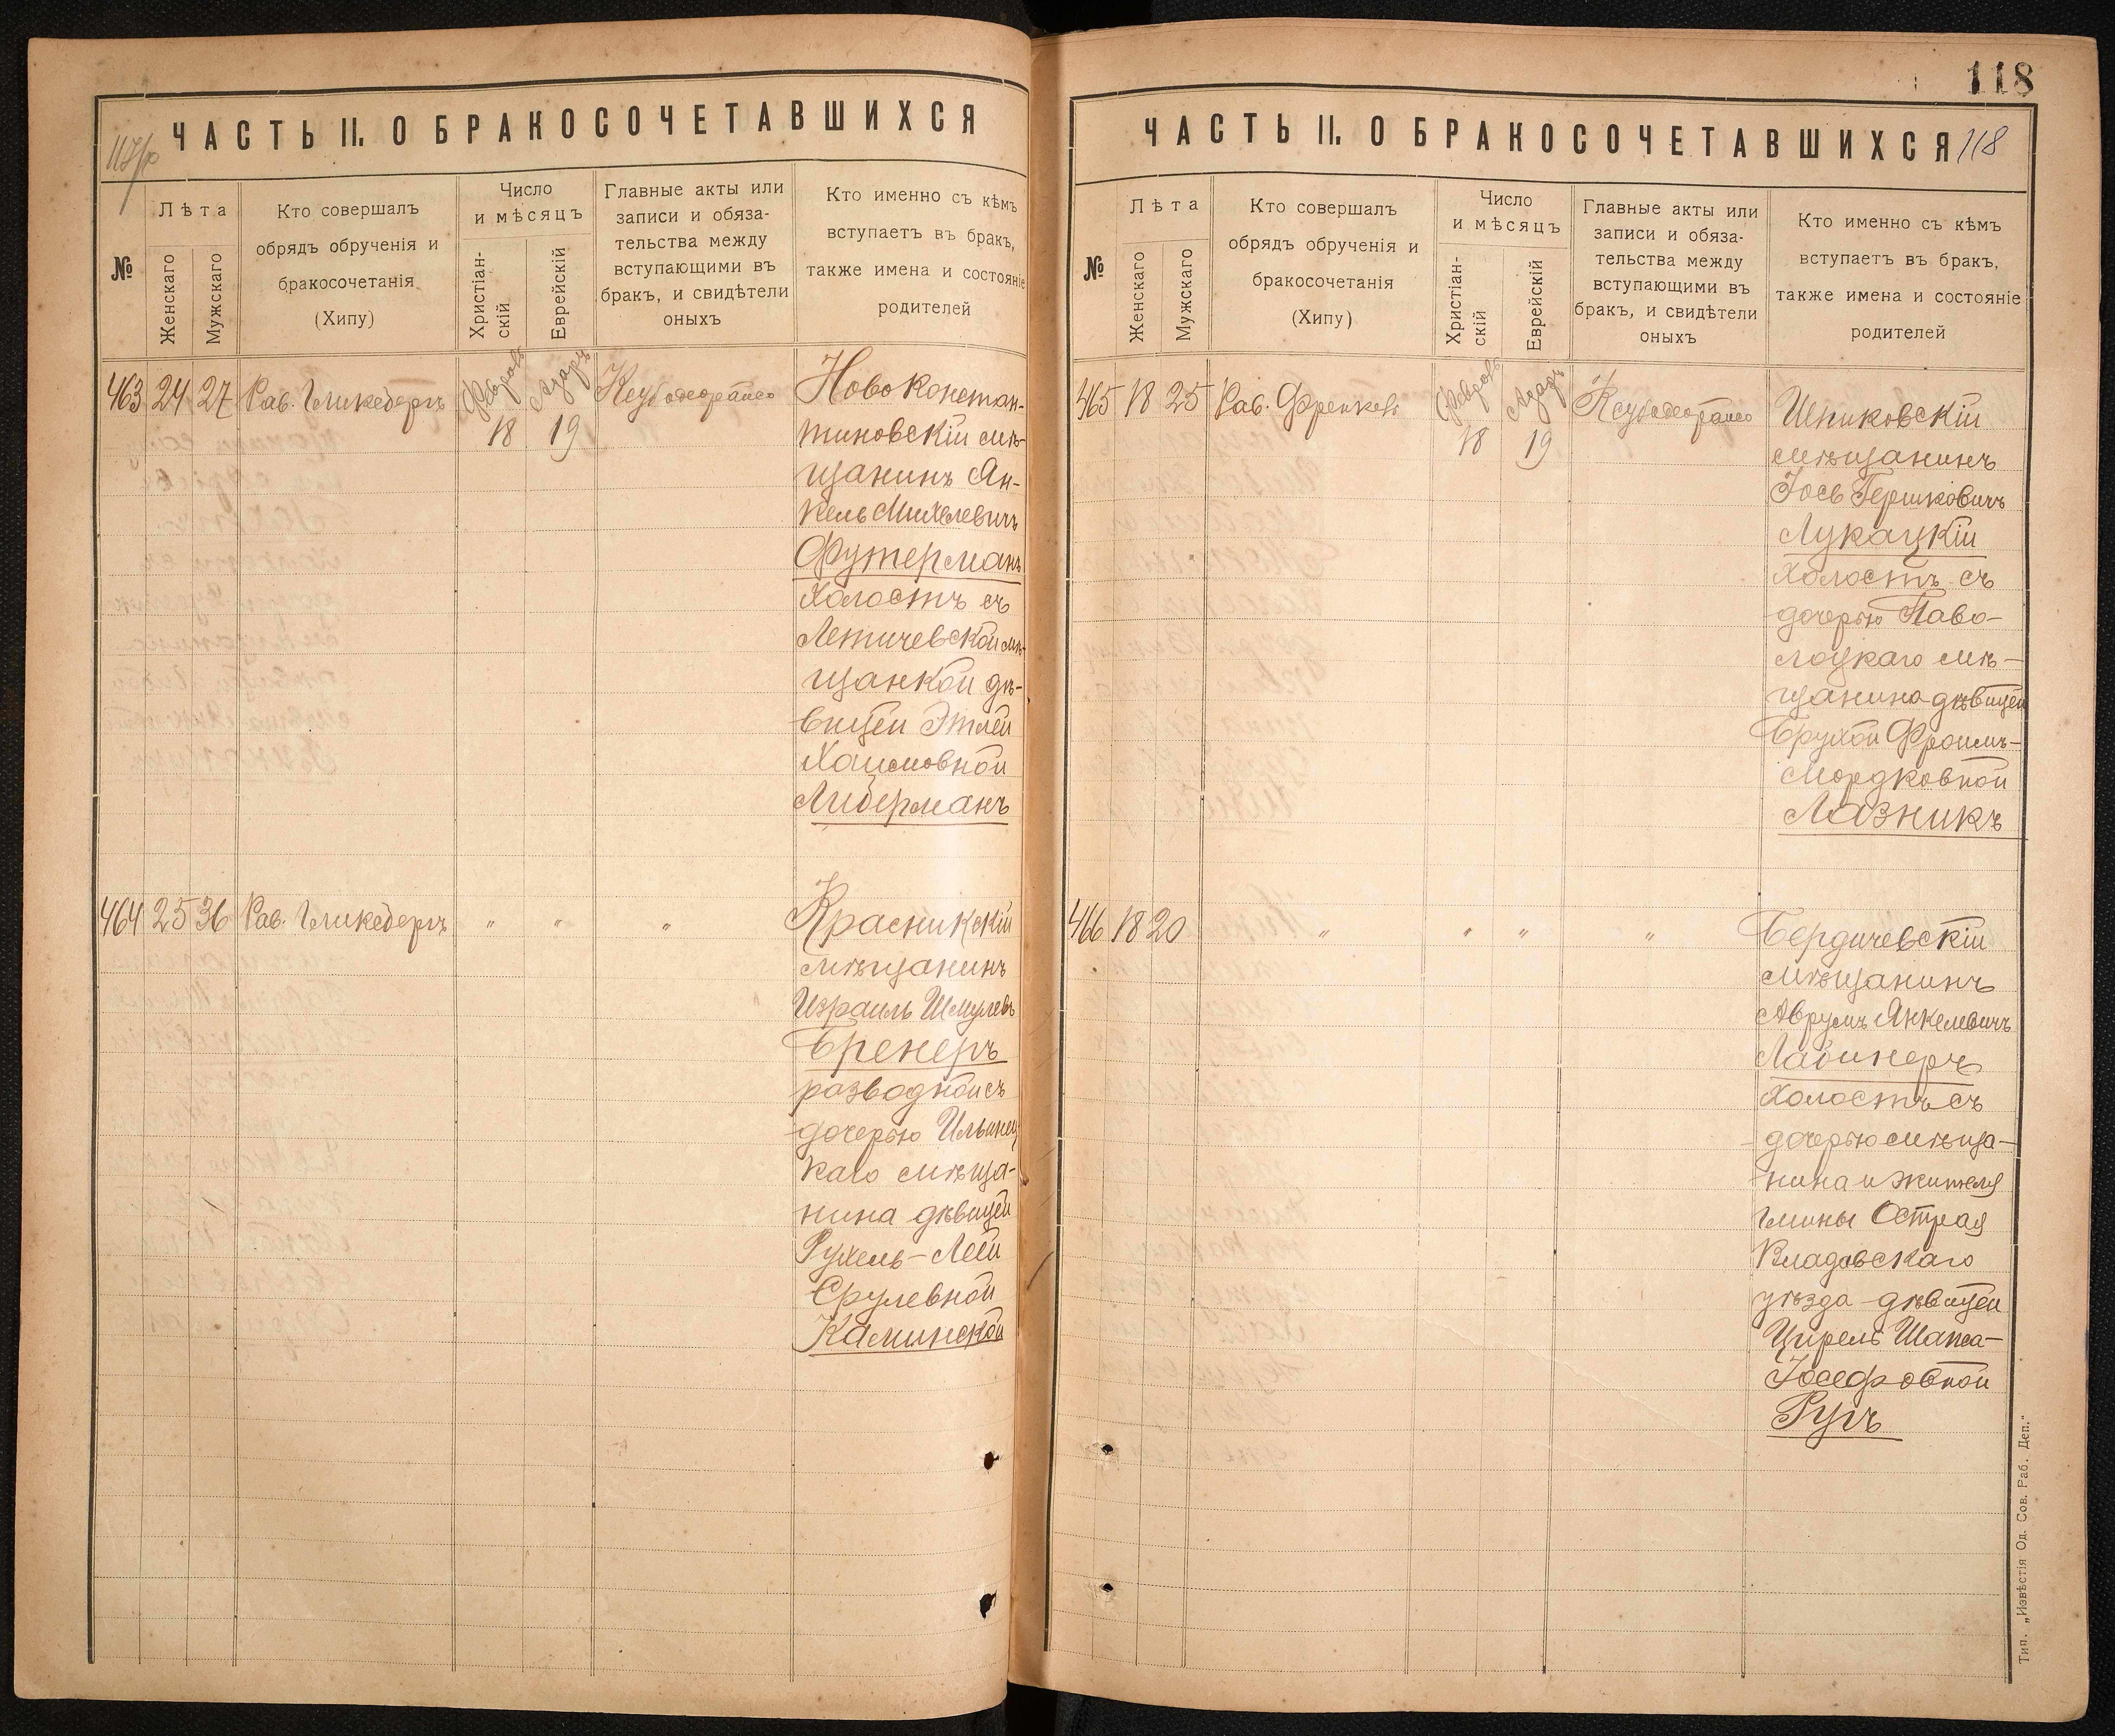 ЧАСТЬ II. О БРАКОСОЧЕТАВШИХСЯ
№
Лѣта
Женскаго
Мужскаго
Кто совершалъ
обрядъ обрученія и
бракосочетанія
(Хипу)
Число
и мѣсяцъ
Христіан-
скій
Еврейскій
Главные акты или
записи и обяза-
тельства между
вступающими въ
бракъ, и свидѣтели
оныхъ
Кто именно съ кѣмъ
вступаетъ въ бракъ,
также имена и состояніе
родителей
463 24 27 Рав. Гликсбергъ
18 19
Ново Констан-
тиновскій мѣ-
щанинъ Ян-
кель Михелевичъ
Футерманъ
холостъ съ
Летичевской мѣ-
щанкой дѣ-
вицей Этлей
Хаимовной
Либерманъ
464 25 36 Рав. Гликсбергъ " " "
Красникскій
мѣщанинъ
Израиль Шмулевъ
Бренеръ
разводной съ
дочерью Ильинец
каго мѣща-
нина дѣвицей
Рухель-Леей
Срулевной
Каминской
118
ЧАСТЬ II. О БРАКОСОЧЕТАВШИХСЯ 118
№
Лѣта
Женскаго
Мужскаго
Кто совершалъ
обрядъ обрученія и
бракосочетанія
(Хипу)
Число
и мѣсяцъ
Христіан-
скій
Еврейскій
Главные акты или
записи и обяза-
тельства между
вступающими въ
бракъ, и свидѣтели
оныхъ
Кто именно съ кѣмъ
вступаетъ въ бракъ,
также имена и состояніе
родителей
465 18 25 Рав. Френкель
18 19
Шпиковскій
мѣщанинъ
Іось Гершковичъ
Лукацкій
холостъ съ
дочерью Паво-
лоцкаго мѣ-
щанина дѣвицей
Брухой Фроимъ-
Мордковной
Лазникъ
466 18 20 " " " "
Бердичевскій
мѣщанинъ
Аврумъ Янкелевичъ
Лабинеръ
холостъ съ
дочерью мѣща-
нина и жителя
гмины Острая
Владовскаго
уѣзда дѣвицей
Цирель Шапса-
Іосефовной
Ругъ
Тип. „Извѣстія Од. Сов. Раб. Деп."